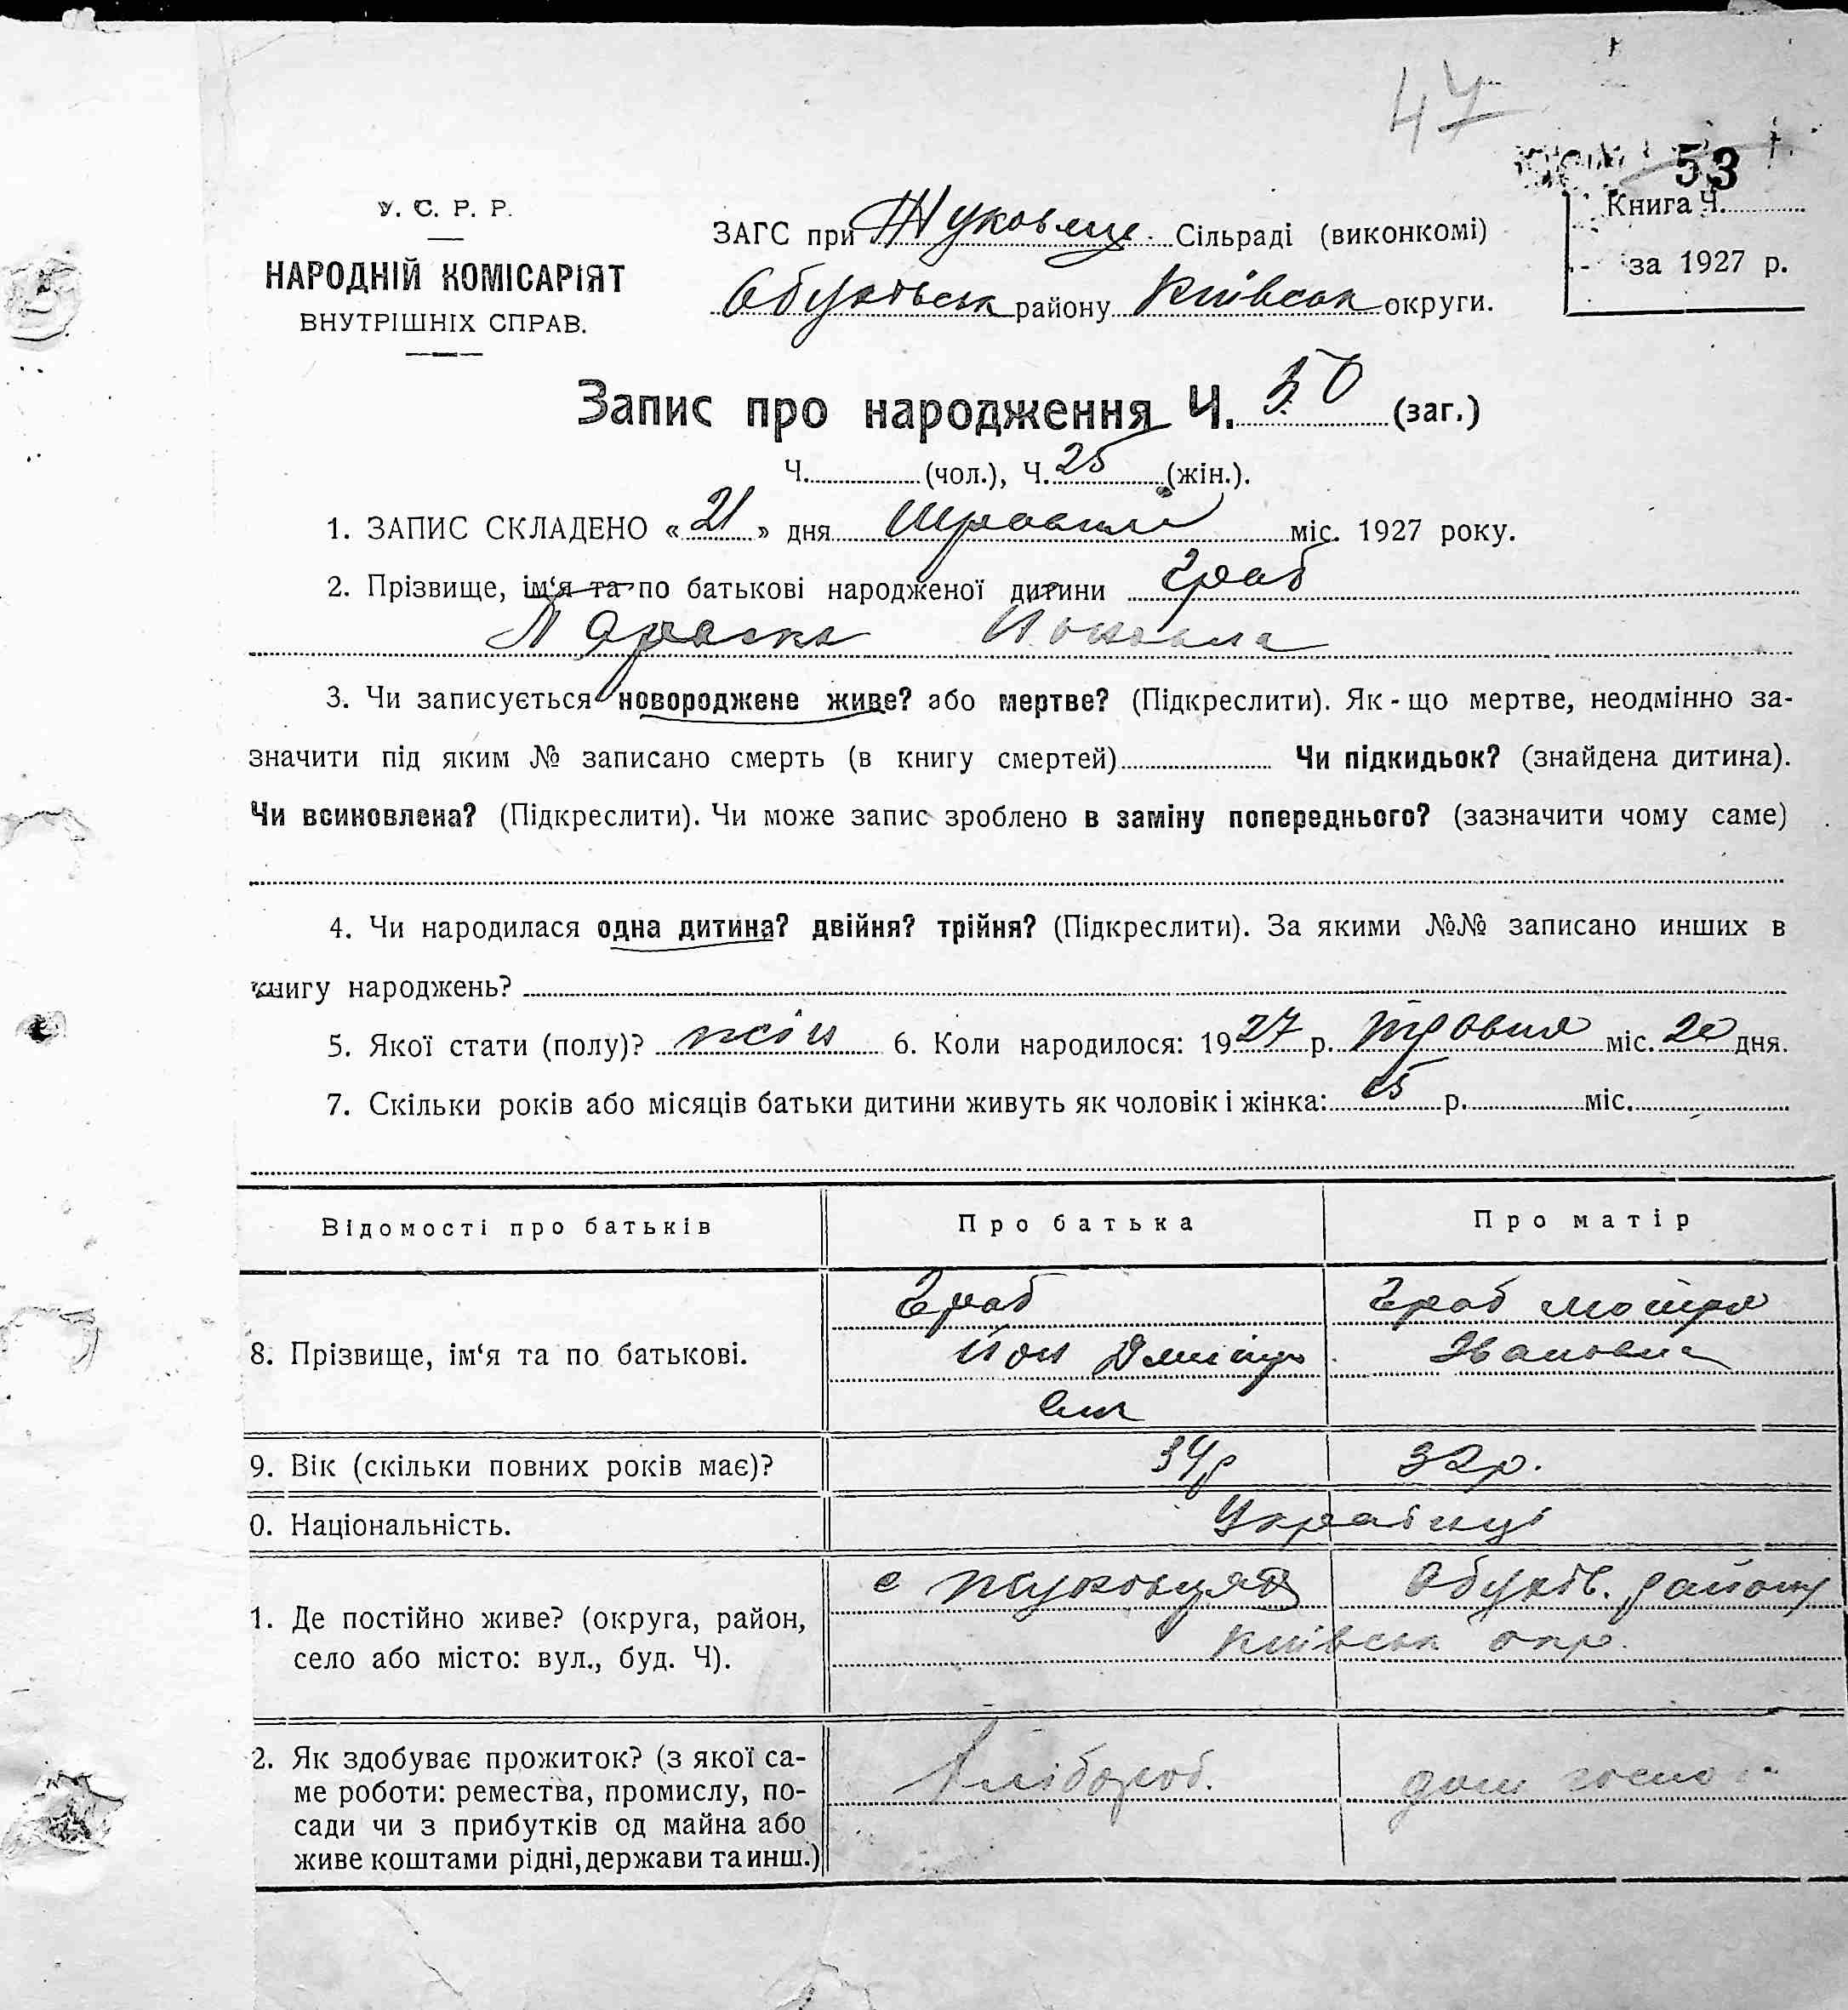 47
53
У. С. Р. Р.
НАРОДНІЙ КОМІСАРІЯТ
ВНУТРІШНІХ СПРАВ.
ЗАГС при Жуковец. Сільраді (виконкомі)
Обухівськ району Київськ округи.
Книга Ч.
за 1927 р.
Запис про народження Ч. 50 (заг.)
Ч. (чол.), Ч. 25 (жін.).
1. ЗАПИС СКЛАДЕНО « 21 » дня Травня міс. 1927 року.
2. Прізвище, ім‘я та по батькові народженої дитини Граб
Параска
3. Чи записується новороджене живе? або мертве? (Підкреслити). Як - що мертве, неодмінно за-
значити під яким № записано смерть (в книгу смертей) Чи підкидьок? (знайдена дитина).
Чи всиновлена? (Підкреслити). Чи може запис зроблено в заміну попереднього? (зазначити чому саме)
4. Чи народилася одна дитина? двійня? трійня? (Підкреслити). За якими №№ записано инших в
книгу народжень?
5. Якої стати (полу)? жін 6. Коли народилося: 1927 р. Травня міс. 20 дня.
7. Скільки років або місяців батьки дитини живуть як чоловік і жінка: р. міс.
Відомості про батьків Про батька Про матір
8. Прізвище, ім‘я та по батькові.
Граб Граб Мотря
Йон Дмитр Івановна
9. Вік (скільки повних років має)? 34р 32р.
0. Національність. Українці
1. Де постійно живе? (округа, район,
село або місто: вул., буд. Ч).
с Жуковцях Обухів. району
Київськ окр.
2. Як здобуває прожиток? (з якої са-
ме роботи: ремества, промислу, по-
сади чи з прибутків од майна або
живе коштами рідні, держави та инш.)
Хлібороб. дом госпо